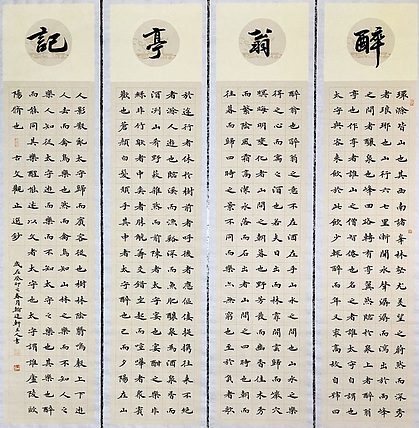 醉
環滁皆山也其西南諸峯林壑尤美望之蔚然而深秀
者琅琊也山行六七里漸聞水聲潺潺而瀉出於兩峰
之間者釀泉也峰回路轉有亭翼然臨於泉上者醉翁
亭也作亭者誰山之僧智僊也名之者誰太守自謂也
太守與客來飲於此飲少輒醉而年又最高故自號曰
翁
醉翁也醉翁之意不在酒在乎山水之間也山水之樂
得之心而寓之酒也若夫日出而林霏開雲歸而巖穴
暝晦明變化者山間之朝暮也野芳發而幽香佳木秀
而繁陰風霜高潔水落而石出者山間之四時也朝而
往暮而歸四時之景不同而樂亦無窮也至於負者歌
亭
於途行者休於樹前者呼後者應傴僂提攜往來不絕
者滁人遊也臨溪而漁溪深而魚肥釀泉為酒泉香而
酒洌山肴野蔌雜然而前陳者太守宴也宴酣之樂非
絲非竹射者中弈者勝觥籌交錯起坐而喧嘩者衆賓
歡也蒼顏白髮頹乎其中者太守醉也已而夕陽在山
記
人影散亂太守歸而賓客從也樹林陰翳鳴聲上下遊
人去而禽鳥樂也然而禽鳥知山林之樂而不知人之
樂人知從太守遊而樂而不知太守之樂其樂也醉
能同其樂醒能述以文者太守也太守謂誰廬陵歐
陽脩也 古文觀止選抄
歲在癸卯之春月